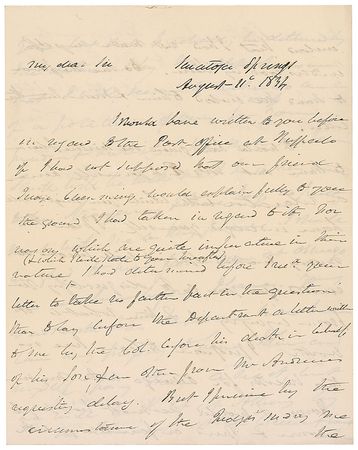 My dear Sir Saratoga Springs
August 11th 1834
I should have written to you before
in regard to the Post-office at Buffalo
if I had not supposed that our friend
Judge would explain fully to you
the ground I had taken in regard to it. For
reasons which are quite imperative in their
(& which I will state to you hereafter)
nature I had determined before I recd your
letter to take no farther part in the question
than to lay before the Department a letter written
to me by the Col. before his death in behalf
of his Son & an other from Mr Andrews
requesting delay. But I presume by the
circumstance of the Judges me
the